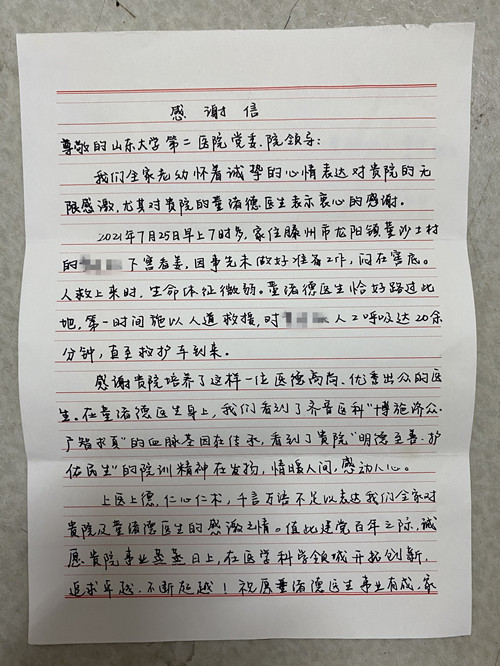 感谢信
尊敬的山东大学第二医院党委、院领导:
我们全家老幼怀着诚挚的心情表达对贵院的无
限感激,尤其对贵院的董诸德医生表示衷心的感谢。
2021年7月25日早上7时多,家住滕州市龙阳镇董沙土村
的 下窖看姜,因事先未做好准备工作,闷在窖底。
人救上来时,生命体征微弱。董诸德医生恰好路过此
地,第一时间施以人道救援,对 人工呼吸达20余
分钟,直至救护车到来。
感谢贵院培养了这样一位医德高尚、优秀出众的医
生。在董诸德医生身上,我们看到了齐鲁医科“博施济众、
广智求真”的血脉基因在传承,看到了贵院“明德至善、护
佑民生”的院训精神在发扬,情暖人间,感动人心。
上医上德,仁心仁术,千言万语不足以表达我们全家对
贵院及董诸德医生的感激之情。值此建党百年之际,诚
愿贵院事业蒸蒸日上,在医学科学领域开拓创新,
追求卓越、不断超越!祝愿董诸德医生事业有成,家